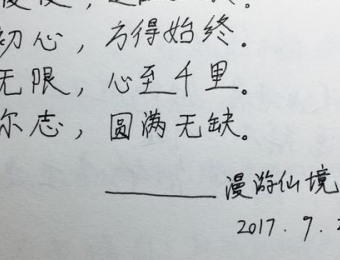 初心，方得始终。
无限，心至千里。
尔志，圆满无缺。
——漫游仙境
2017.9.2